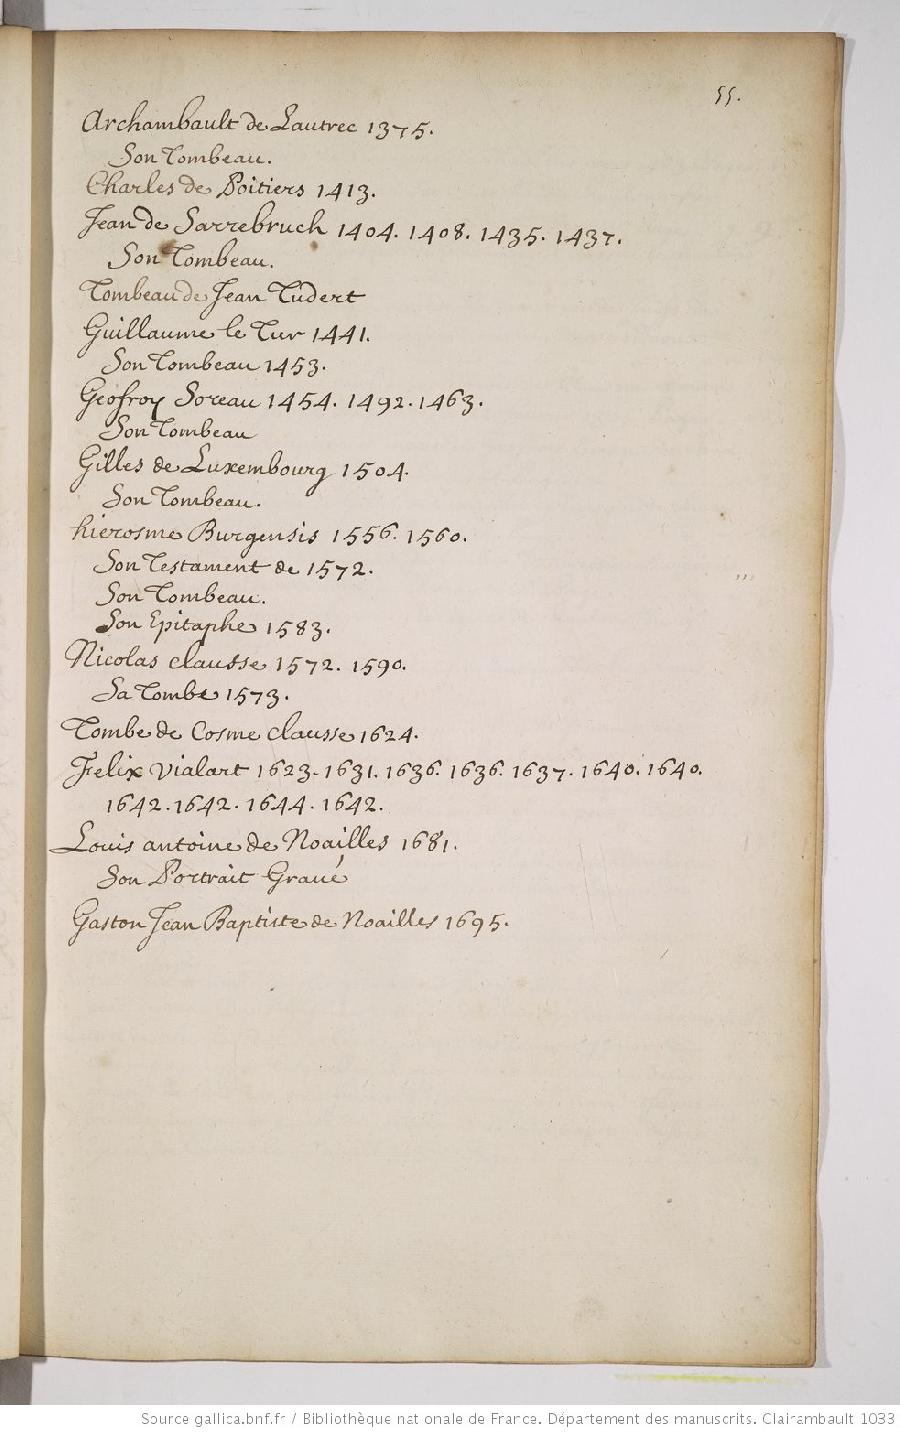 55.
Archambault de Lautrec 1375.
Son Tombeau.
Charles de Poitiers 1413.
Jean de Sarrebruch 1404. 1408. 1435. 1437.
Son Tombeau.
Tombeau de Jean Tudert
Guillaume le Tur 1441.
Son Tombeau 1453.
Geofroy Soreau 1454. 1492. 1463.
Son Tombeau
Gilles de Luxembourg 1504.
Son Tombeau.
hierosme Burgensis 1556. 1560.
Son Testament de 1572.
Son Tombeau.
Son Epitaphe 1583.
Nicolas clausse 1572. 1590.
Sa Tombe 1573.
Tombe de Cosme clausse 1624.
Felix vialart 1623. 1631. 1636. 1636. 1637. 1640. 1640.
1642. 1642. 1644. 1642.
Louis antoine de Noailles 1681.
Son Portrait Gravé
Gaston Jean Baptiste de Noailles 1695.
Source gallica.bnf.fr / Bibliothèque nationale de France. Département des manuscrits. Clairambault 1033